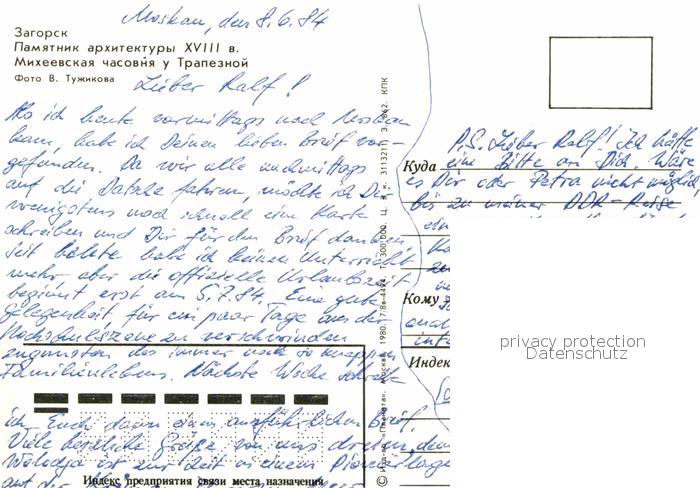 Moskau, den 8.6.84
Загорск
Памятник архитектуры XVIII в.
Михеевская часовня у Трапезной
Фото В. Тужикова
Lieber Ralf!
Als ich heute vormittags nach Moskau
kam, habe ich Deinen lieben Brief vor-
gefunden. Da wir alle nachmittags
auf die Datsche fahren, möchte ich Dir
wenigstens noch schnell eine Karte
schreiben und Dir für den Brief danken.
Seit habe ich keinen Unterricht
mehr, aber die offizielle Urlaubszeit
beginnt erst am 5.7.84. Eine gute
Gelegenheit für ein paar Tage aus der
Hochschulszene zu verschwinden
zugunsten des immer noch so knappen
Familienlebens. Nächste Woche schreibe
ich Euch dann einen ausführlichen Brief.
Viele herzliche Grüße von uns dreien, denn
Wolodja ist zur Zeit in einem Pionierlager
auf der
Индекс предприятия связи места назначения
© Изд-во «Планета». Москва. 1980. 7/8в-4494. Т. 300 000. Ц. 3 к. 3113211. З. 862. КПК
P.S. Lieber Ralf! Ich hätte
Куда eine Bitte an Dich. Wäre
es Dir oder Petra nicht möglich,
bis zu meiner DDR-Reise
Кому
Индек
privacy protection
Datenschutz